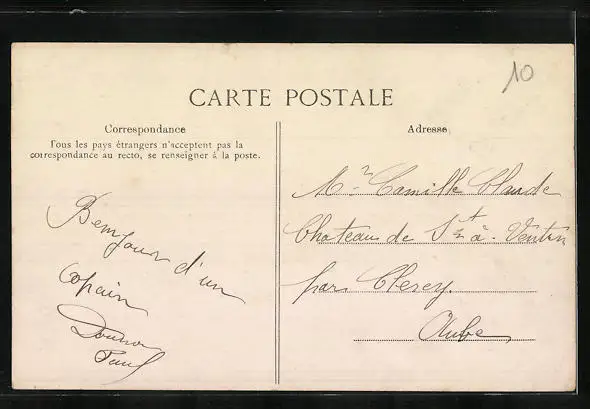 10
CARTE POSTALE
Correspondance
Tous les pays étrangers n'acceptent pas la
correspondance au recto, se renseigner à la poste.
Bonjour d'un
copain
Paul
Adresse
Mr Camille Claude
Chateau de St à-Ventin
par Clerey.
Aube